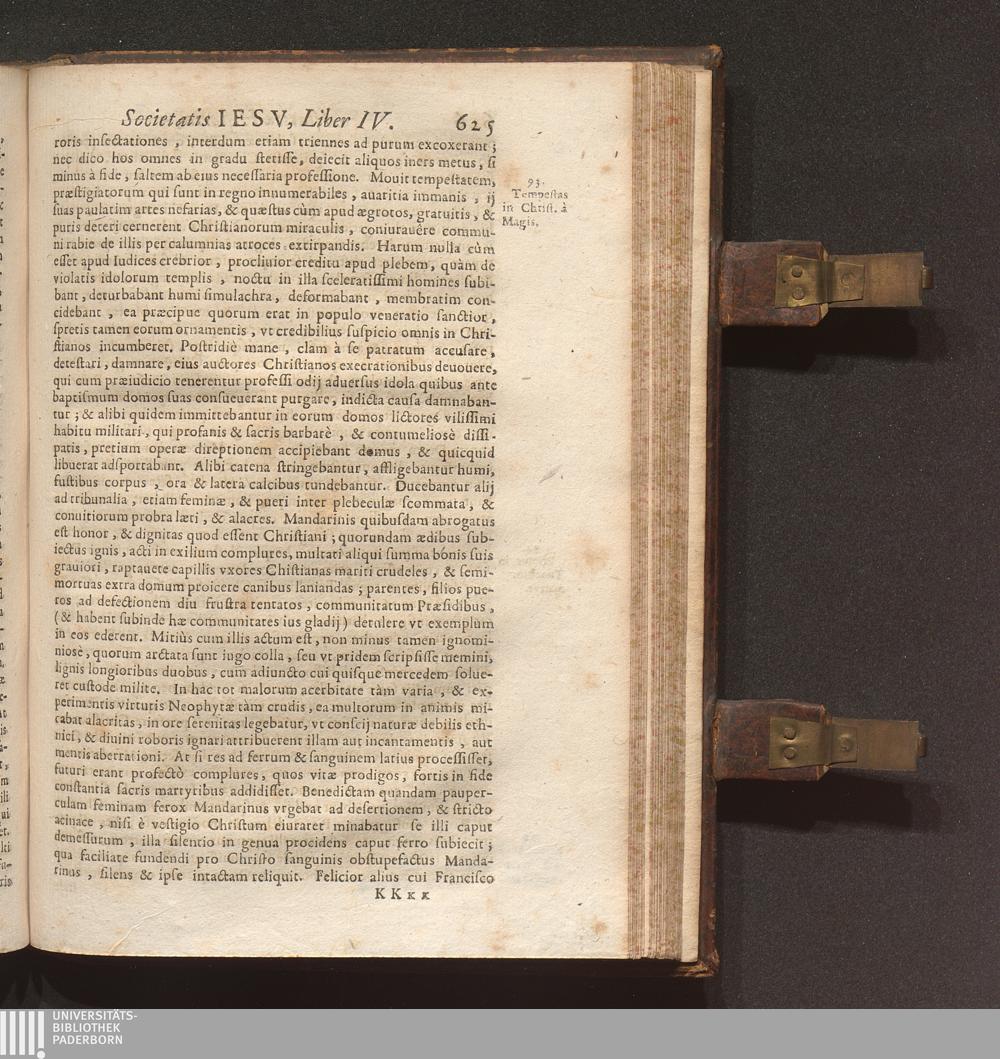 Societatis IESV, Liber IV. 625
roris insectationes, interdum etiam triennes ad purum excoxerant;
nec dico hos omnes in gradu stetisse, deiecit aliquos iners metus, si
minus à fide, saltem ab eius necessaria professione. Mouit tempestatem,
præstigiatorum qui sunt in regno innumerabiles, auaritia immanis, ij
suas paulatim artes nefarias, & quæstus cùm apud ægrotos, gratuitis, &
puris deteri cernerent Christianorum miraculis, coniurauêre commu-
ni rabie de illis per calumnias atroces extirpandis. Harum nulla cùm
esset apud Iudices crebrior, procliuior creditu apud plebem, quàm de
violatis idolorum templis, noctu in illa sceleratissimi homines subi-
bant, deturbabant humi simulachra, deformabant, membratim con-
cidebant, ea præcipue quorum erat in populo veneratio sanctior,
spretis tamen eorum ornamentis, vt credibilius suspicio omnis in Chri-
stianos incumberet. Postridiè mane, clam à se patratum accusare,
detestari, damnare, eius auctores Christianos execrationibus deuouere,
qui cum præiudicio tenerentur professi odij aduersus idola quibus ante
baptismum domos suas consueuerant purgare, indicta causa damnaban-
tur; & alibi quidem immittebantur in eorum domos lictores vilissimi
habitu militari, qui profanis & sacris barbarè, & contumeliosè dissi-
patis, pretium operæ direptionem accipiebant domus, & quicquid
libuerat adsportabant. Alibi catena stringebantur, affligebantur humi,
fustibus corpus, ora & latera calcibus tundebantur. Ducebantur alij
ad tribunalia, etiam feminæ, & pueri inter plebeculæ scommata, &
conuitiorum probra læti, & alacres. Mandarinis quibusdam abrogatus
est honor, & dignitas quod essent Christiani; quorundam ædibus sub-
iectus ignis, acti in exilium complures, multati aliqui summa bónis suis
grauiori, raptauere capillis vxores Chistianas mariti crudeles, & semi-
mortuas extra domum proicere canibus laniandas; parentes, filios pue-
ros ad defectionem diu frustra tentatos, communitatum Præsidibus,
(& habent subinde hæ communitates ius gladij) detulere vt exemplum
in eos ederent. Mitiùs cum illis actum est, non minus tamen ignomi-
niosè, quorum arctata sunt iugo colla, seu vt pridem scripsisse memini,
lignis longioribus duobus, cum adiuncto cui quisque mercedem solue-
ret custode milite. In hac tot malorum acerbitate tàm varia, & ex-
perimentis virtutis Neophytæ tàm crudis, ea multorum in animis mi-
cabat alacritas, in ore serenitas legebatur, vt conscij naturæ debilis eth-
nici, & diuini roboris ignari attribuerent illam aut incantamentis, aut
mentis aberrationi. At si res ad ferrum & sanguinem latius processisset,
futuri erant profectò complures, quos vitæ prodigos, fortis in fide
constantia sacris martyribus addidisset. Benedictam quandam pauper-
culam feminam ferox Mandarinus vrgebat ad desertionem, & stricto
acinace, nisi è vestigio Christum eiuraret minabatur se illi caput
demessurum, illa silentio in genua procidens caput ferro subiecit;
qua facilitate fundendi pro Christo sanguinis obstupefactus Manda-
rinus, silens & ipse intactam reliquit. Felicior alius cui Francisco
KKKK
93.
Tempestas
in Christ. à
Magis.
UNIVERSITÄTS-
BIBLIOTHEK
PADERBORN